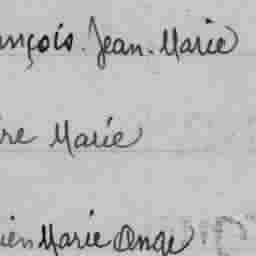 nçois. Jean. Marie
re Marie
ien Marie Ange